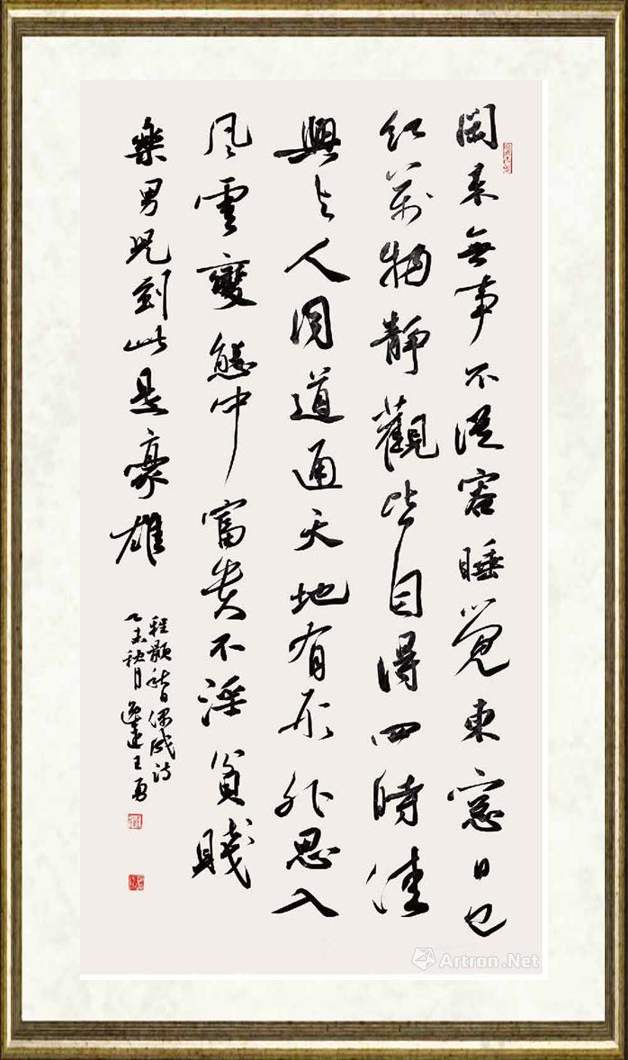 閑来無事不從容睡覺東窓日已
紅萬物靜觀皆自得四時佳
興与人同道通天地有形外思入
风雲變態中富貴不淫貧賤
樂男児到此是豪雄
程颢秋日偶成诗
乙未秋月
Artron.Net